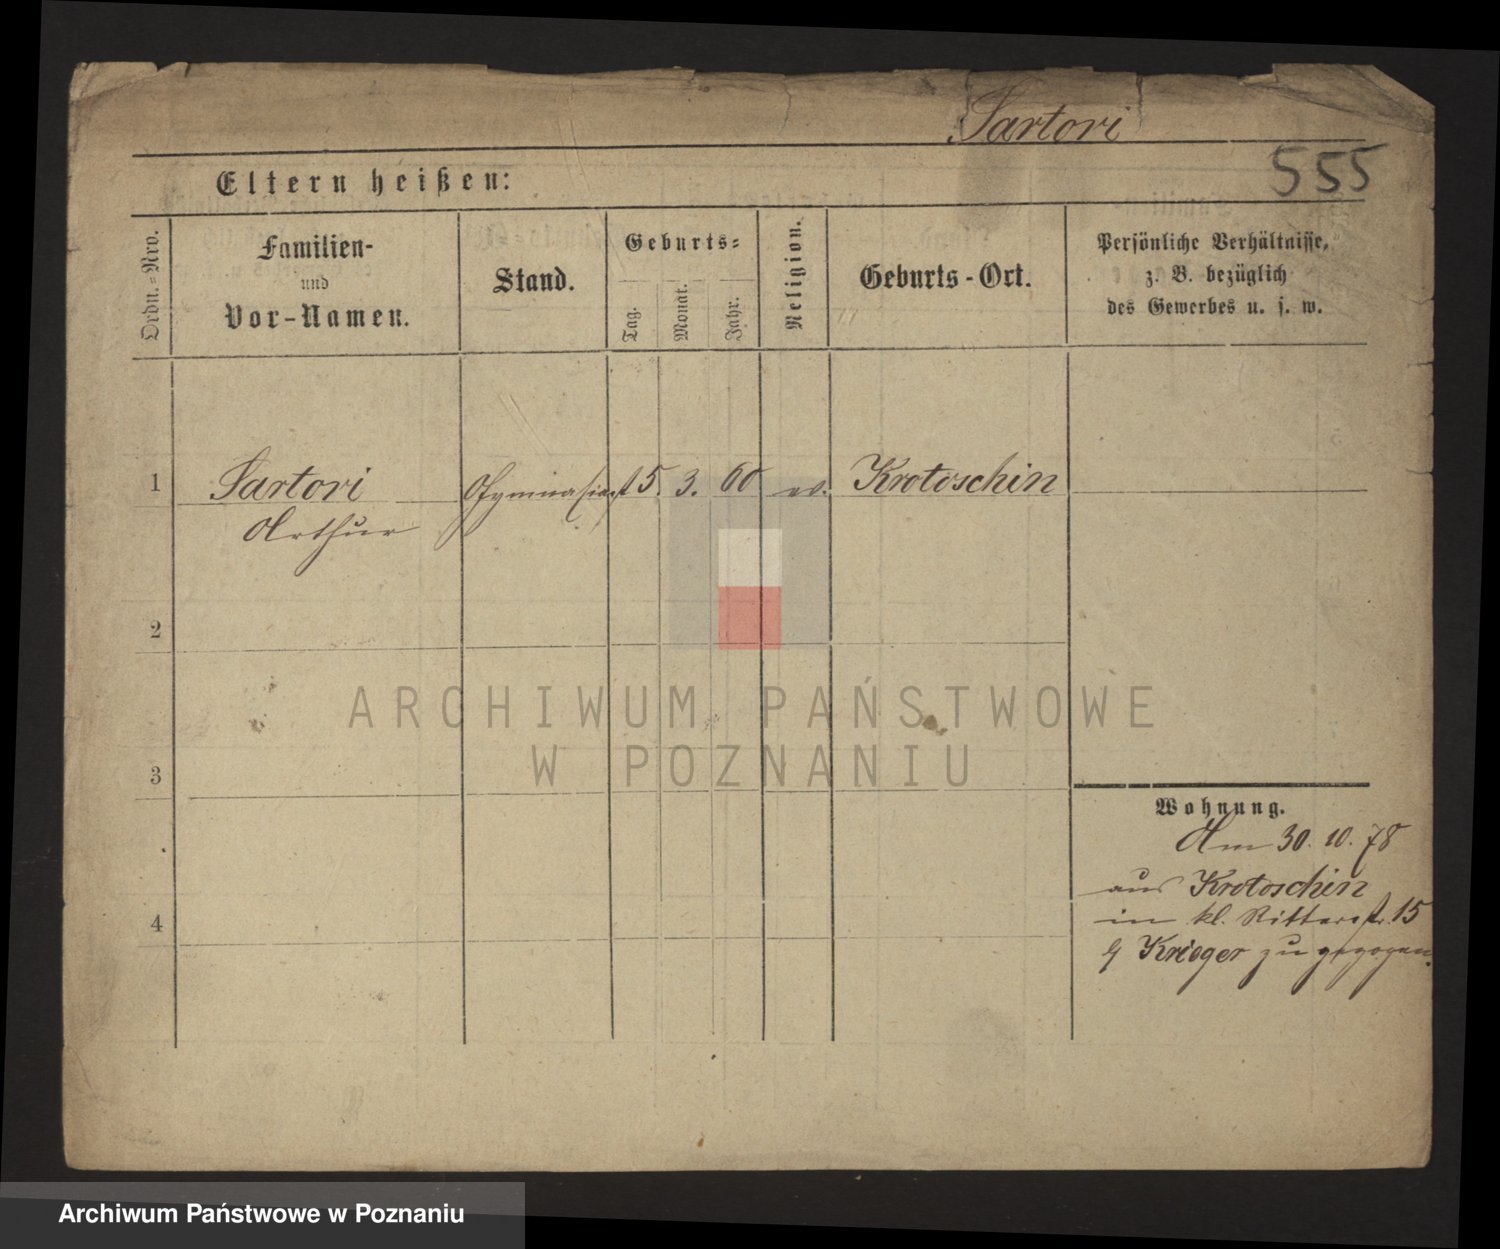 Sartori
555
Eltern heißen:
Ordn.=Nro.
Familien-
und
Vor-Namen.
Stand.
Geburts=
Tag.
Monat.
Jahr.
Religion.
Geburts-Ort.
Persönliche Verhältnisse,
z. B. bezüglich
des Gewerbes u. s. w.
1 Sartori Gymnasiast 5. 3. 60 ev. Krotoschin
Arthur
2
ARCHIWUM PAŃSTWOWE
W POZNANIU
3
Wohnung.
Am 30. 10. 78
aus Krotoschin
in kl. Ritterstr. 15
4
Krieger zu gezogen.
Archiwum Państwowe w Poznaniu